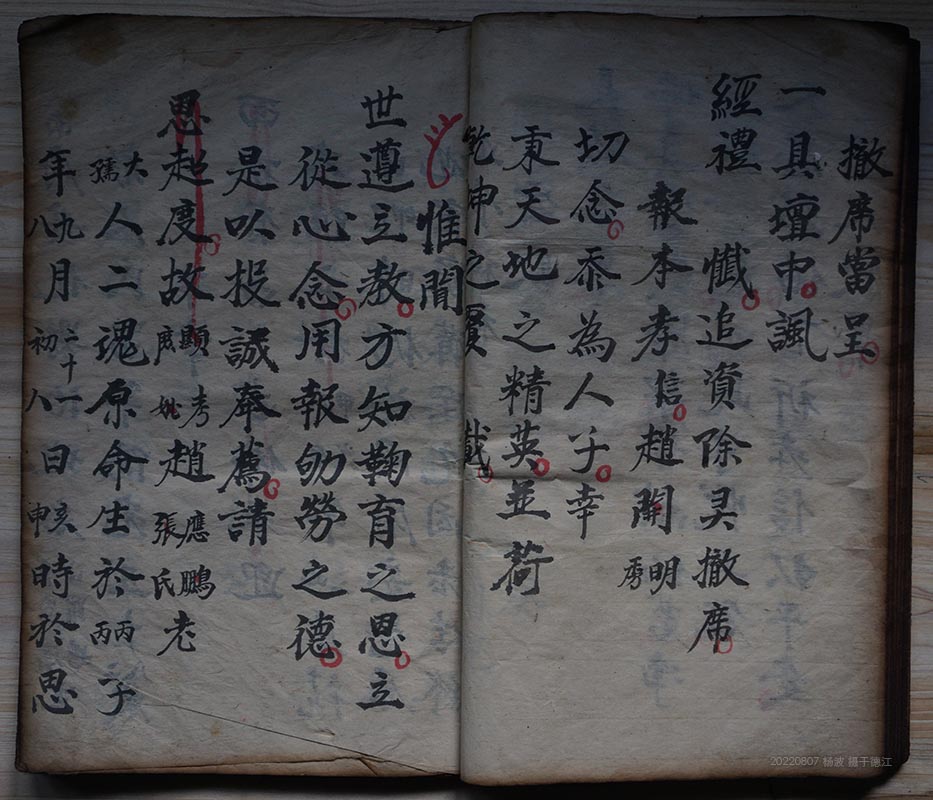 撤席當呈
一具壇中諷
經禮
懺追資除灵撤席
報本孝信趙開明秀
切念忝為人子幸
秉天地之精英並荷
乾坤之覆載
惟聞
世遵立教方知鞠育之恩立
從心念用報劬勞之德
是以投誠奉薦請
恩超度故顯考妣趙應鵬張氏老
大孺人二魂原命生於丙丙子
年九八月二十一初八日亥申時於恩
20220807 杨波 摄于德江